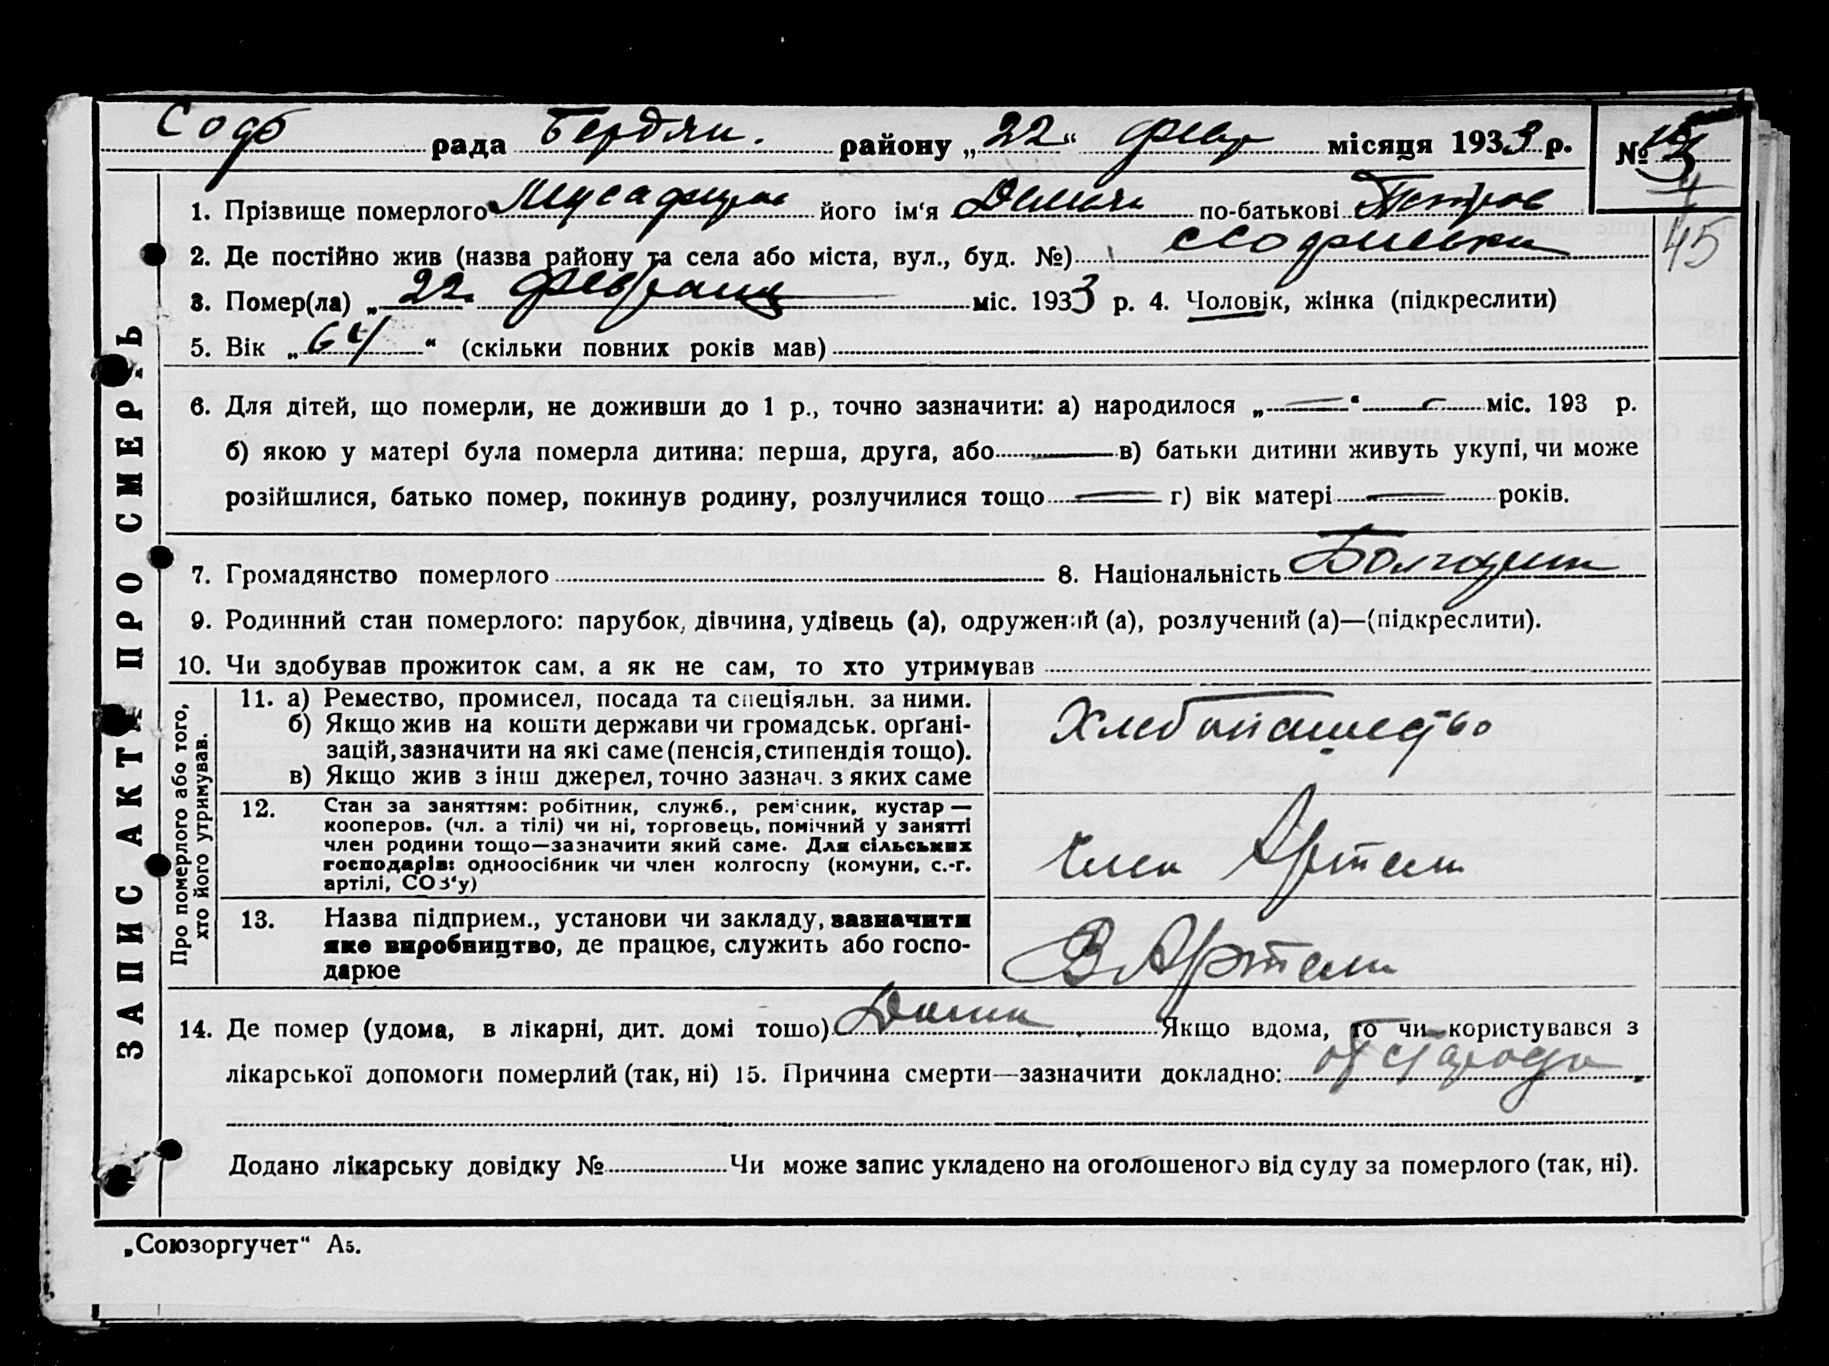 Соф рада Бердян. району „22“ февр місяця 1933 р. №
1. Прізвище померлого Мусафиров його ім‘я Демьян по-батькові Петров
45
2. Де постійно жив (назва району та села або міста, вул., буд. №) Софиевка
3. Помер(ла) „22 февраля міс. 1933 р. 4. Чоловік, жінка (підкреслити)
5. Вік „64“ (скільки повних років мав)
6. Для дітей, що померли, не доживши до 1 р., точно зазначити: а) народилося „—“ — міс. 193 р.
б) якою у матері була померла дитина: перша, друга, або — в) батьки дитини живуть укупі, чи може
розійшлися, батько помер, покинув родину, розлучилися тощо — г) вік матері — років.
7. Громадянство померлого 8. Національність Болгарин
9. Родинний стан померлого: парубок, дівчина, удівець (а), одружений (а), розлучений (а)—(підкреслити).
10. Чи здобував прожиток сам, а як не сам, то хто утримував
ЗАПИС АКТУ ПРО СМЕРТЬ
Про померлого або того,
хто його утримував.
11. а) Ремество, промисел, посада та спеціяльн. за ними.
б) Якщо жив на кошти держави чи громадськ. орґані-
зацій, зазначити на які саме (пенсія, стипендія тощо).
в) Якщо жив з інш джерел, точно зазнач. з яких саме
Хлебопашество
12. Стан за заняттям: робітник, служб., ремісник, кустар —
кооперов. (чл. а тілі) чи ні, торговець, помічний у занятті
член родини тощо—зазначити який саме. Для сільських
господарів: одноосібник чи член колгоспу (комуни, с.-г.
артілі, СОЗ‘у)
член Артели
13. Назва підприєм., установи чи закладу, зазначити
яке виробництво, де працює, служить або госпо-
дарює
В Артели
14. Де помер (удома, в лікарні, дит. домі тошо) Дома Якщо вдома, то чи користувався з
лікарської допомоги померлий (так, ні) 15. Причина смерти—зазначити докладно: от старода
Додано лікарську довідку № Чи може запис укладено на оголошеного від суду за померлого (так, ні).
„Союзоргучет“ А5.